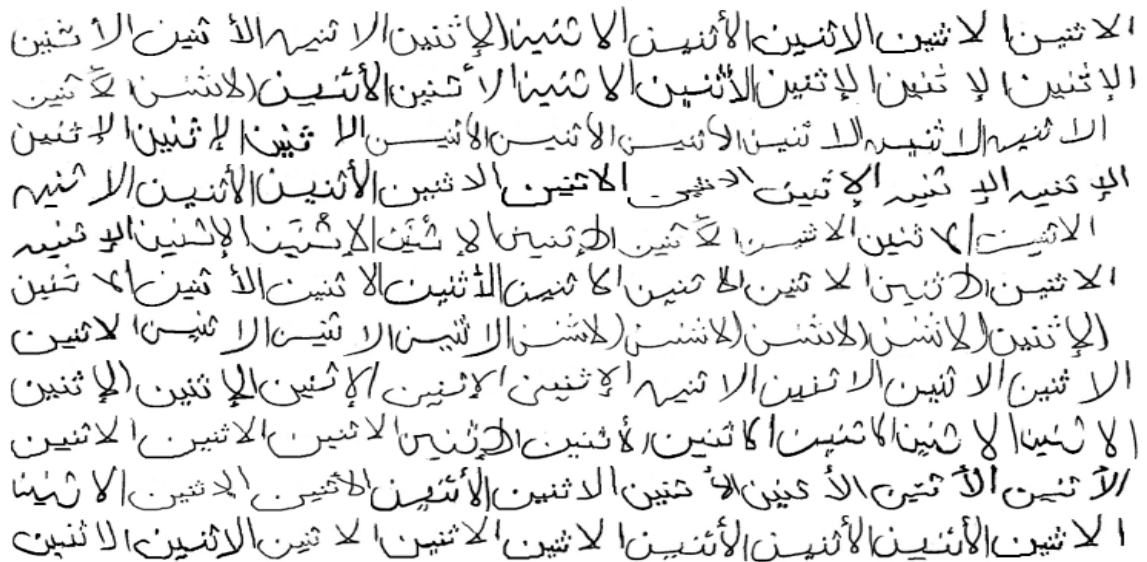 الاثنين الاثنين الاثنين الأثنين الاثنين الإثنين الاثنين الأثنين الأثنين
الإثنين الإثنين الإثنين الأثنين الاثنين الأثنين الأثنين الاثنين الأثنين
الاثنين الاثنين الاثنين الأثنين الأثنين الأثنين الاثنين الإثنين الإثنين
الإثنين الإثنين الإثنين الاثنين الاثنين الاثنين الأثنين الأثنين الاثنين
الاثنين الاثنين الاثنين الأثنين الإثنين الإثنين الإثنين الإثنين الإثنين
الاثنين الاثنين الاثنين الاثنين الاثنين الأثنين الاثنين الأثنين الاثنين
الإثنين الاثنين الاثنين الاثنين الاثنين الاثنين الاثنين الاثنين الاثنين
الاثنين الاثنين الاثنين الاثنين الإثنين الإثنين الإثنين الإثنين الإثنين
الاثنين الاثنين الاثنين الاثنين الأثنين الإثنين الاثنين الاثنين الاثنين
الأثنين الأثنين الأثنين الأثنين الاثنين الأثنين الأثنين الاثنين الاثنين
الاثنين الأثنين الأثنين الأثنين الاثنين الاثنين الاثنين الاثنين الاثنين